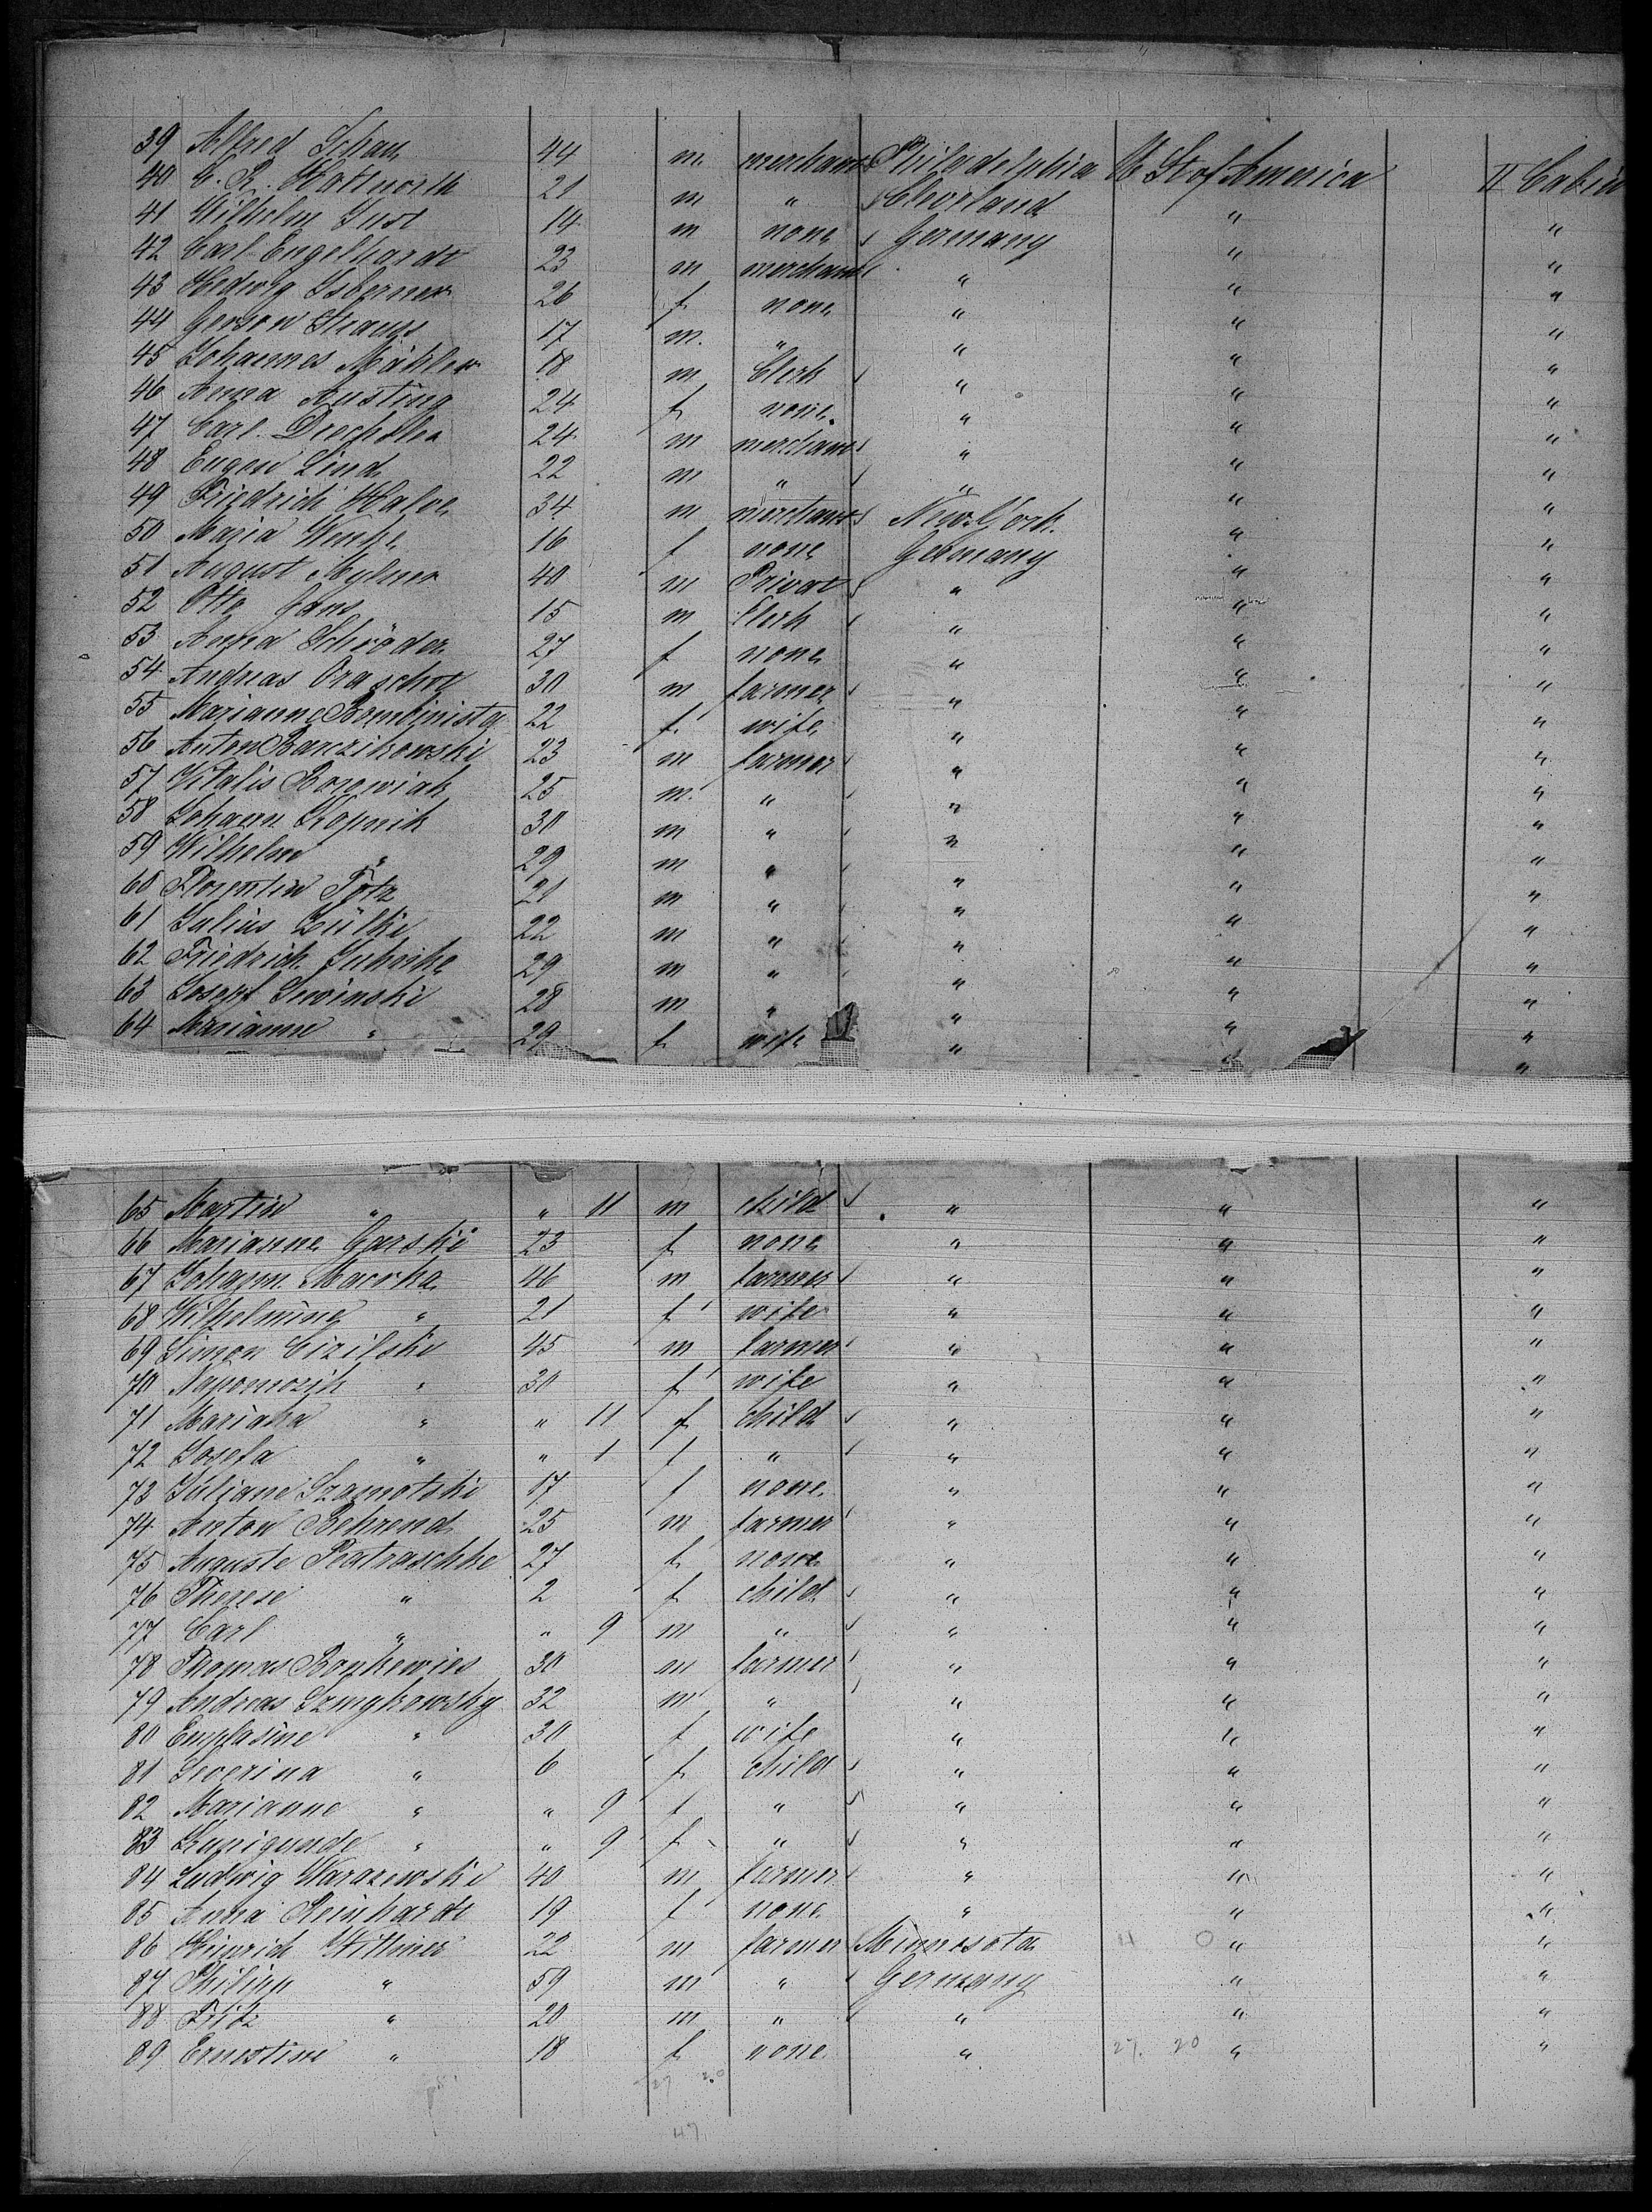 39 Alfred Schau 44 m. merchant Philadelphia U. St of America II Cabin
40 C. R. Hottnorth 21 m " Cleveland " "
41 Wilhelm Just 14 m none Germany " "
42 Carl Engelhardt 23 m merchant " " "
43 Hedwig Isberner 26 f none " " "
44 Gerson Strauss 17 m. " " " "
45 Johannes Mähler 18 m Clerk " " "
46 Anna Austing 24 f none " " "
47 Carl Drechsler 24 m merchant " " "
48 Eugen Lind 22 m " " " "
49 Friedrich 34 m merchant New York " "
50 Maria 16 f none Germany " "
51 August Mylner 40 m Privat " " "
52 Otto Gans 15 m Clerk " " "
53 Anna Schröder 27 f none " " "
54 Andreas 30 m farmer " " "
55 Marianne 22 f wife " " "
56 Anton Banzikowski 23 m farmer " " "
57 Vitalis Borowiak 25 m " " " "
58 Johann Kopnik 30 m " " " "
59 Wilhelm " 29 m " " " "
60 Florentin 21 m " " " "
61 Julius Zülki 22 m " " " "
62 Friedrich 29 m " " " "
63 Josepf Lewinski 28 m " " " "
64 Marianne " 29 f wife " " "
65 Martin " " 11 m child " " "
66 Marianne Garski 23 f none " " "
67 Johann 46 m farmer " " "
68 Wilhelmine " 21 f wife " " "
69 Simon Cizilski 45 m farmer " " "
70 " 30 f wife " " "
71 Mariana " " 11 f child " " "
72 Josefa " " 1 f " " " "
73 Juliane Szamotski 17 f none " " "
74 Anton Behrend 25 m farmer " " "
75 Auguste Peatraschke 27 f none " " "
76 Therese " 2 f child " " "
77 Carl " " 9 m " " " "
78 Thomas Bonkewics 30 m farmer " " "
79 Andreas Szmykowsky 32 m " " " "
80 " 30 f wife " " "
81 Severina " 6 f child " " "
82 Marianne " " 9 f " " " "
83 Kunigunde " " 9 f " " " "
84 Ludwig Warazewski 40 m farmer " " "
85 Anna Reinhardt 19 f none " " "
86 Heinrich Wittmer 22 m farmer Minnesota " "
87 Philipp " 59 m " Germany " "
88 Fritz " 20 m " " " "
89 Ernestine " 18 f none " 27. 20 " "
27 20
47